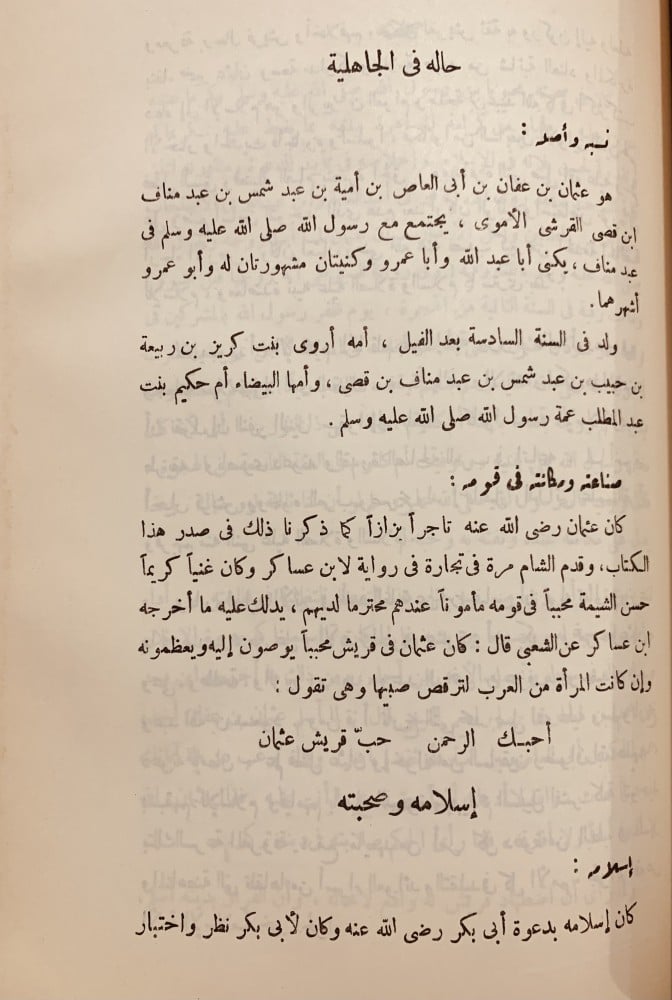 حاله فى الجاهلية
نسبه وأصله :
هو عثمان بن عفان بن أبى العاص بن أمية بن عبد شمس بن عبد مناف
ابن قصى القرشى الأموى ، يجتمع مع رسول الله صلى الله عليه وسلم فى
عبد مناف ، يكنى أبا عبد الله وأبا عمرو وكنيتان مشهورتان له وأبو عمرو
أشهرهما .
ولد فى السنة السادسة بعد الفيل ، أمه أروى بنت كريز بن ربيعة
بن حبيب بن عبد شمس بن عبد مناف بن قصى ، وأمها البيضاء أم حكيم بنت
عبد المطلب عمة رسول الله صلى الله عليه وسلم .
صناعته ومكانته فى قومه :
كان عثمان رضى الله عنه تاجراً بزازاً كما ذكرنا ذلك فى صدر هذا
الكتاب ، وقدم الشام مرة فى تجارة فى رواية لابن عساكر وكان غنياً كريماً
حسن الشيمة محبباً فى قومه مأموناً عندهم محترما لديهم ، يدلك عليه ما أخرجه
ابن عساكر عن الشعبى قال : كان عثمان فى قريش محبباً يوصون إليه ويعظمونه
وإن كانت المرأة من العرب لترقص صبيها وهى تقول :
أحبـك الرحمن حبّ قريش عثمان
إسلامه وصحبته
إسلامه :
كان إسلامه بدعوة أبى بكر رضى الله عنه وكان لأبى بكر نظر واختبار